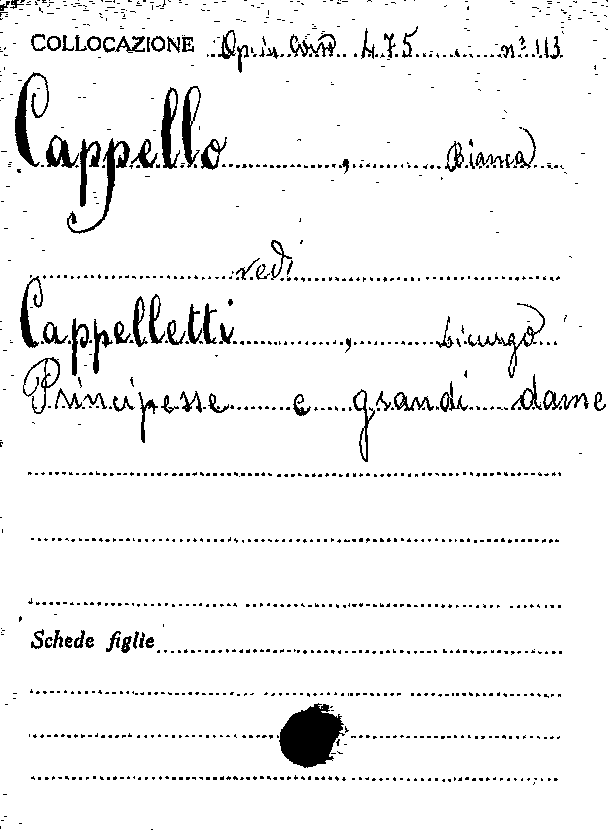 COLLOCAZIONE Op. in Cons 475 nº 113
Cappello, Bianca
vedi
Cappelletti, Licurgo
Principesse e grandi dame
Schede figlie